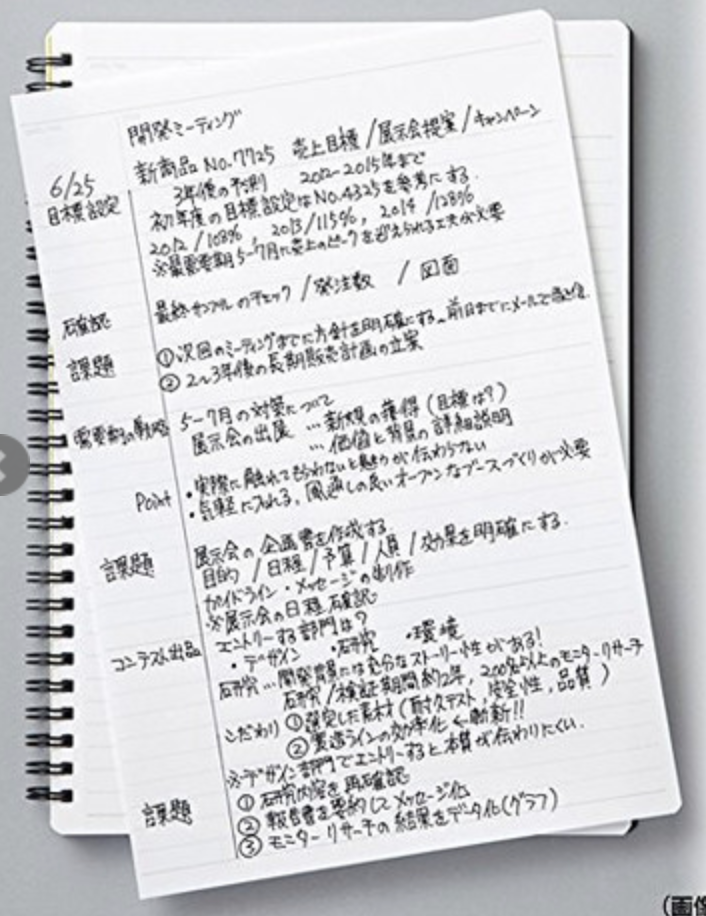 開発ミーティング
6/25 新商品 No.7725 売上目標/展示会提案/キャンペーン
目標設定 3年後の予測 2012-2015年まで
初年度の目標設定はNo.4325を参考にする.
2012/108% 2013/115%, 2014/128%
※最需要期5-7月に売上のピークを迎えられる工夫が必要
確認 最終サンプルのチェック/発注数 /図面
課題 ①次回のミーティングまでに方針を明確にする。前日までにメールで
② 2~3年後の長期販売計画の立案
需要期の戦略 5-7月の対策について
展示会の出展 …新規の獲得(目標は?)
…価値と背景の詳細説明
Point ・実際に触れてもらわないと魅力が伝わらない
・気軽に入れる、風通しの良いオープンなブースづくりが必要
課題 展示会の企画書を作成する.
目的/日程/予算/人員/効果を明確にする.
ガイドライン・メッセージの制作
※展示会の日程確認
コンテスト出品 エントリーする部門は?
・デザイン ・研究 ・環境
研究…開発背景には充分なストーリー性がある!
研究/検証期間約2年, 200名以上のモニターリサーチ
こだわり ①選定した素材(耐久テスト,安全性,品質)
②製造ラインの効率化←斬新!!
※デザイン部門でエントリーすると本質が伝わりにくい.
課題 ①研究内容を再確認
②報告書を要約してメッセージ化
③モニターリサーチの結果をデータ化(グラフ)
(画像